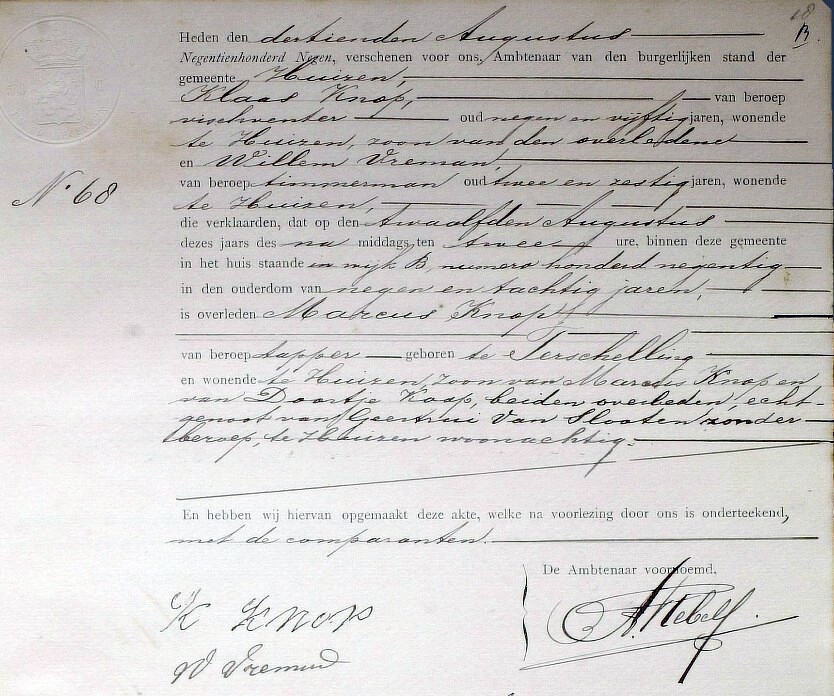 18
B.
Heden den dertienden Augustus
Negentienhonderd Negen, verschenen voor ons, Ambtenaar van den burgerlijken stand der
gemeente Huizen,
Klaas Knop, van beroep
vischventer oud negen en vijftig jaren, wonende
te Huizen, zoon van den overledene
en Willem Vreman,
van beroep timmerman oud twee en zestig jaren, wonende
te Huizen,
die verklaarden, dat op den twaalfden Augustus
dezes jaars des na middags ten twee ure, binnen deze gemeente
in het huis staande in wijk B, numero honderd negentig
in den ouderdom van negen en tachtig jaren,
is overleden Marcus Knop
van beroep tapper geboren te Terschelling
en wonende te Huizen, zoon van Marcus Knop en
van Doortje Koop, beiden overleden, echt-
genoot van Geertrui Van Slooten zonder
beroep, te Huizen woonachtig.
N° 68
En hebben wij hiervan opgemaakt deze akte, welke na voorlezing door ons is onderteekend,
met de comparanten.
De Ambtenaar voornoemd,
K Knop
W Vreman